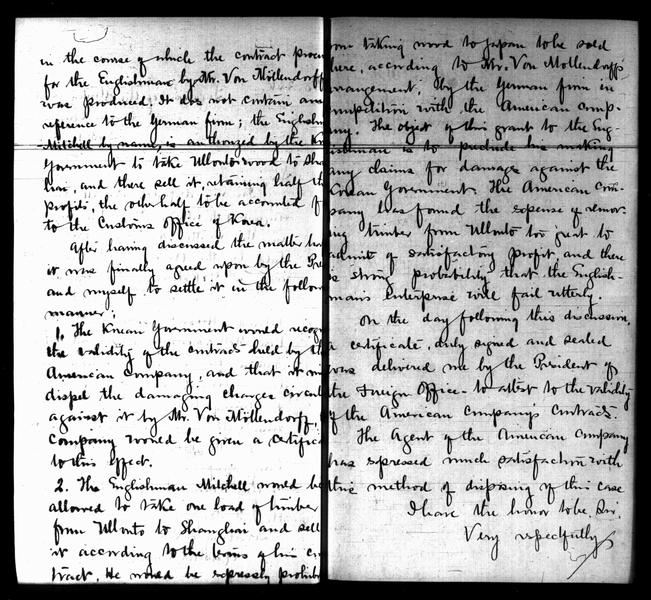 in the course of which the contract
for the Englishman by Mr. Von Möllendorff
was produced. It does not contain
reference to the German firm; the
Mitchell by name, is authorized by the
Government to take Ullonto wood to
hai, and there sell it, retaining half
profits, the other half to be accounted
to the Customs Office of Korea.
After having discussed the matter
it was finally agreed upon by the
and myself to settle it in the
manner;
1. The Korean Government would
the validity of the contract held by
American Company, and that it
dispel the damaging charges
against it by Mr. Von Möllendorff,
Company would be given a
to this effect.
2. The Englishman Mitchell would
allowed to take one load of timber
from Ullonto to Shanghai and sell
it according to the terms of his
tract. He would be expressly
taking wood to Japan to be sold
according to Mr. Von Möllendorff's
by the German firm in
with the American
The object of this grant to the Eng-
is to preclude his making
any claims for damage against the
Korean Government. The American Com-
pany has found the expense of remov-
ing timber from Ullonto too great to
admit of satisfactory profit, and there
is strong probability that the English-
man's enterprise will fail utterly.
On the day following this discussion,
a certificate, duly signed and sealed
was delivered me by the President of
the Foreign Office - to attest to the validity
of the American Company's contract.
The Agent of the American Company
has expressed much satisfaction with
this method of disposing of this case
I have the honor to be, Sir,
Very respectfully